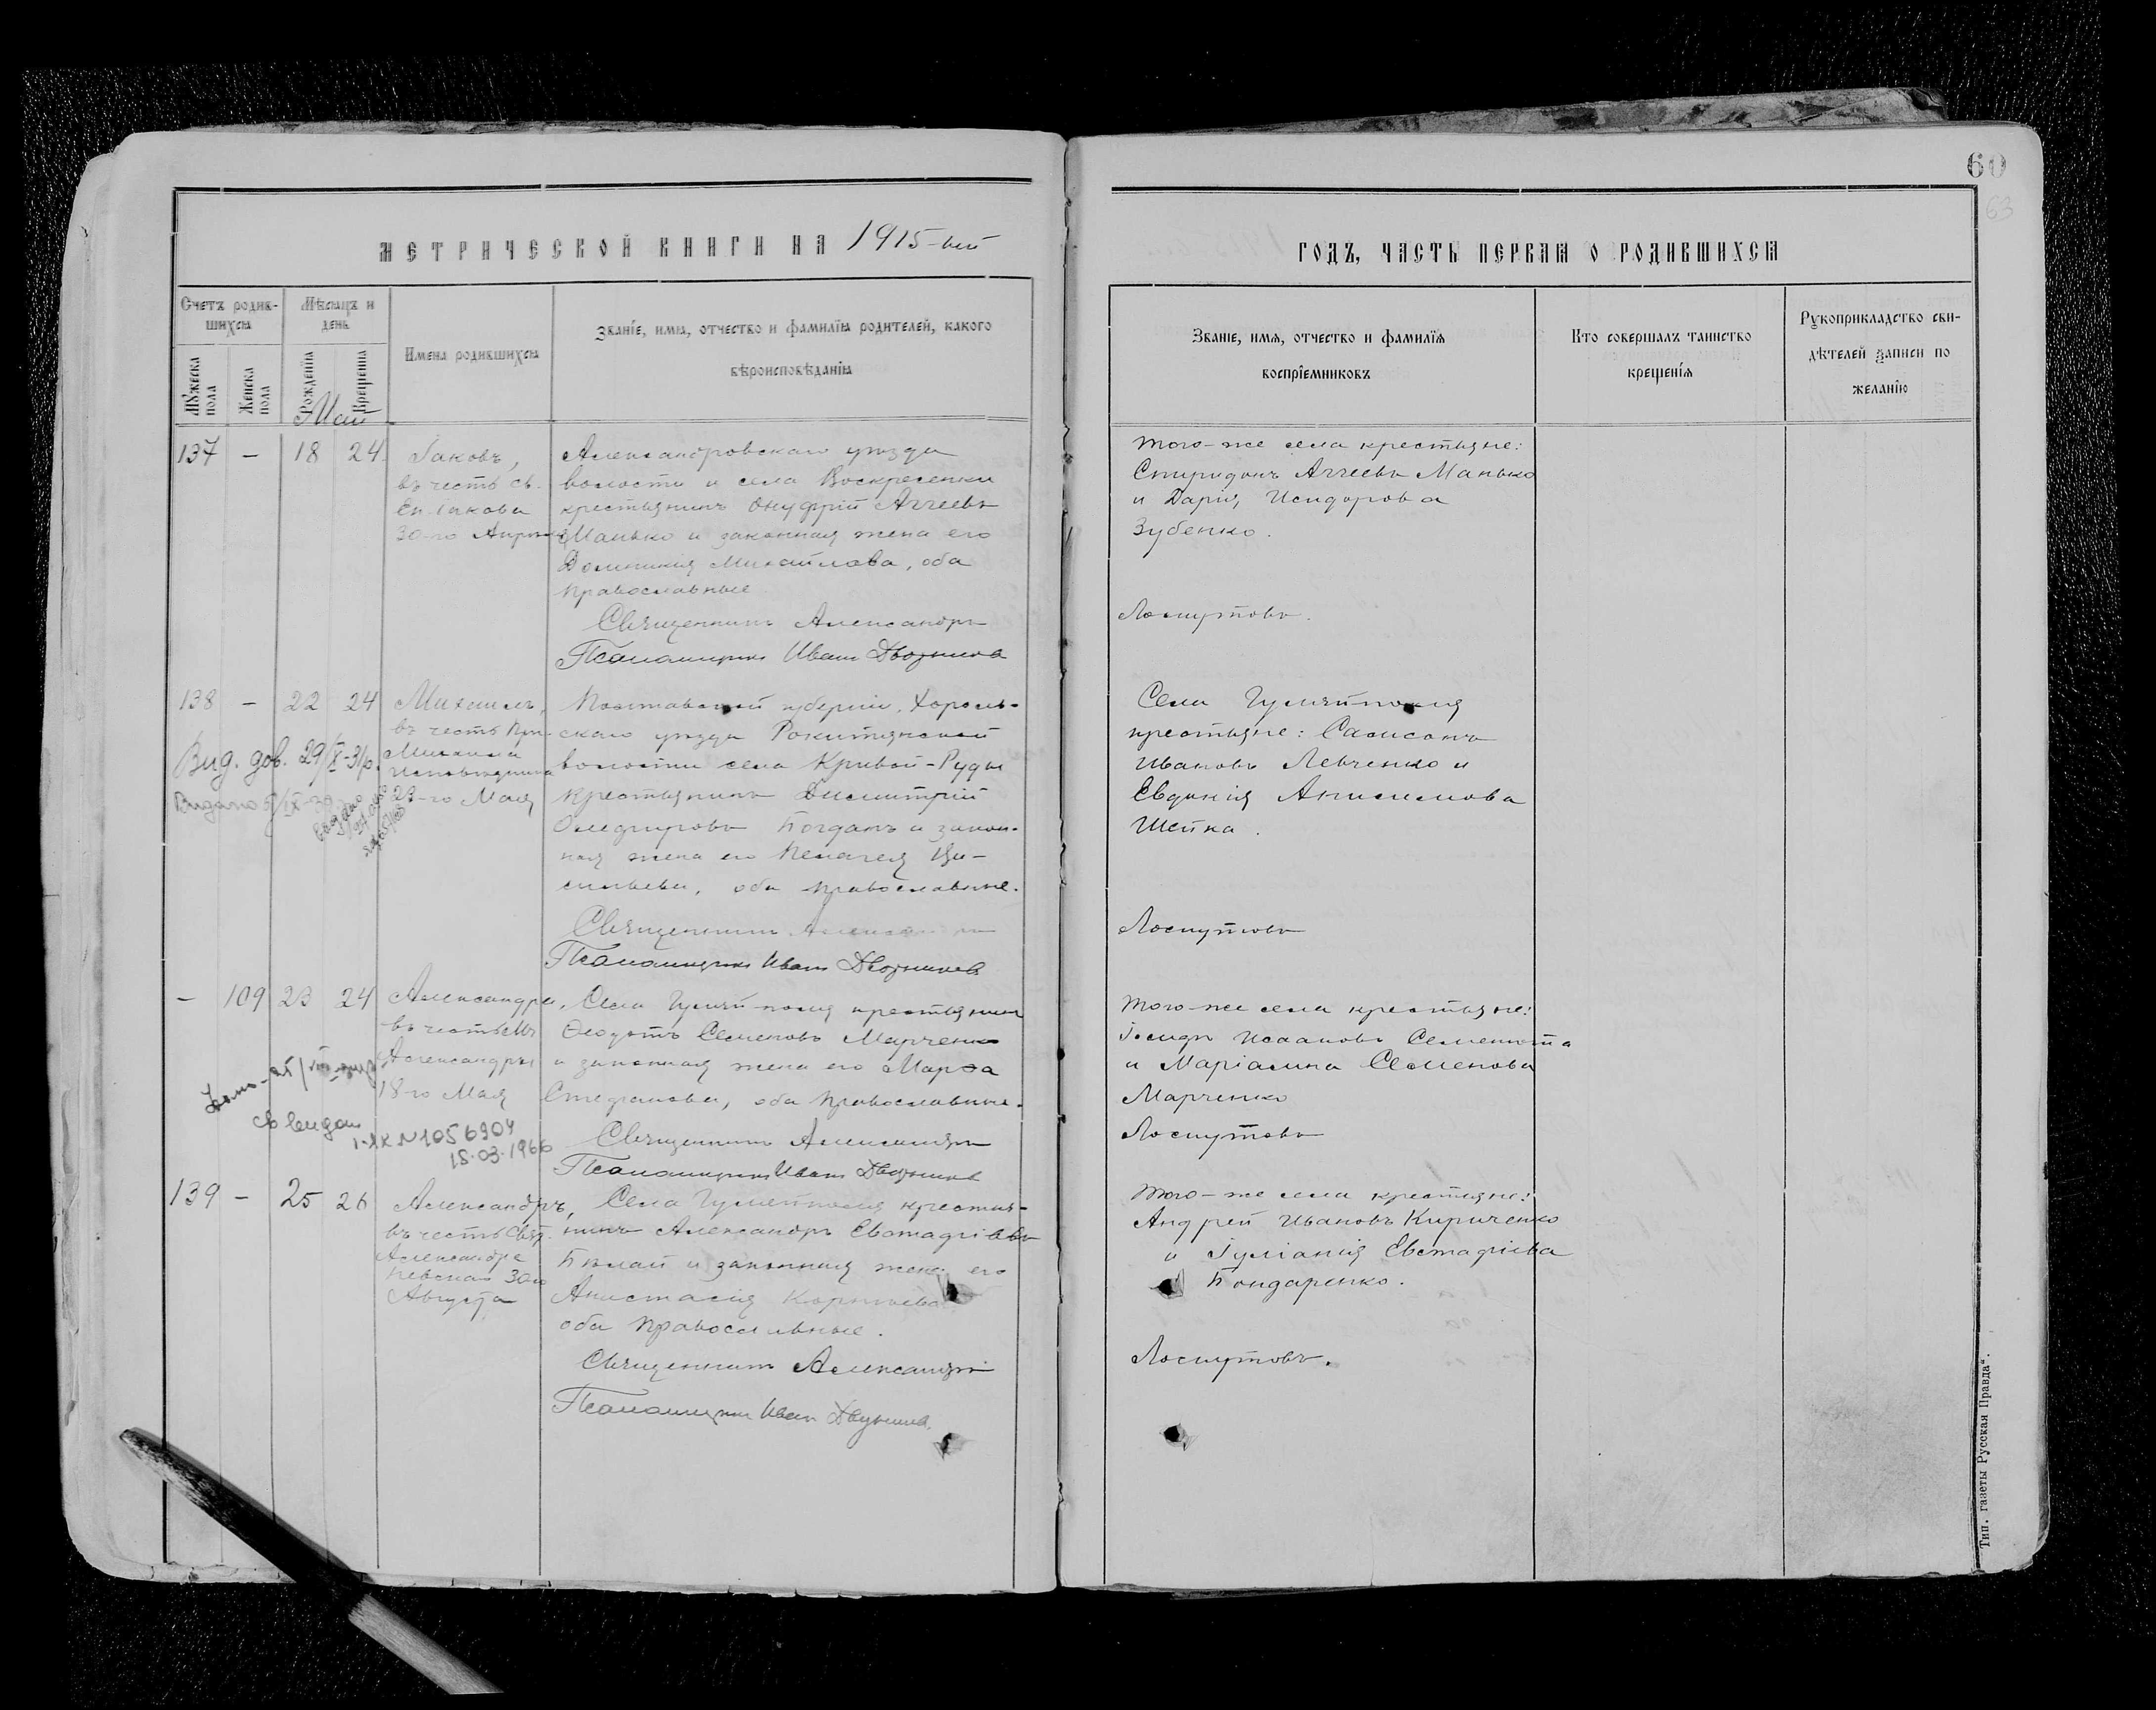 60
63
МЕТРИЧЕСКОЙ КНИГИ НА 1915-ый
ГОДЪ, ЧАСТЬ ПЕРВАЯ О РОДИВШИХСЯ
Счетъ родив-
шихся
Мѣсяцъ и
день
Мужеска
пола
Женска
пола
Рожденія
Крещенія
Май
Имена родившихся
Званіе, имя, отчество и фамилія родителей, какого
вѣроисповѣданія
Званіе, имя, отчество и фамилія
воспріемниковъ
Кто совершалъ таинство
крещенія
Рукоприкладство сви-
дѣтелей записи по
желанію
137 — 18 24
Іаковъ,
въ честь св.
Еп. Іакова
30-го Апрѣля
Александровскаго уѣзда
волости и села Воскресенки
крестьянинъ Онуфрій Аггеевъ
Манько и законная жена его
Домникія Михайлова, оба
православные
Священникъ Александръ
Псаломщикъ Иванъ
Того-же села крестьяне:
Спиридонъ Аггеевъ Манько
и Дарія Исидорова
Зубенко.
Лоскутовъ.
138 — 22 24
Михаилъ,
въ честь Пр.
Михаила
Исповѣдника
23-го Мая
Вид. дов. 29/X-31р.
Видано
Полтавской губерніи, Хороль-
скаго уѣзда Рокитянской
волости села Кривой-Руды
крестьянинъ Димитрій
Богданъ и закон-
ная жена его Пелагея Ва-
сильева, оба православные.
Священникъ
Псаломщикъ Иванъ
Села Гуляйполя
крестьяне: Самсонъ
Ивановъ Левченко и
Евдокія Анисимова
Шейка.
Лоскутовъ
— 109 23 24
Александра,
въ честь Мц
Александры
18-го Мая
св видан
I-ЯК N1056904
18.03.1966
Села Гуляй-поля крестьянинъ
Ѳеодотъ Семеновъ Марченко
и законная жена его Марѳа
Стефанова, оба православные.
Священникъ Александръ
Псаломщикъ Иванъ
Того-же села крестьяне:
Исааковъ Семенюта
и Маріамна Семенова
Марченко
Лоскутовъ
139 — 25 26
Александръ,
въ честь Свят.
Александра
Невскаго 30го
Августа
Села Гуляйполя крестья-
нинъ Александръ Евстафіевъ
Бѣлай и законная жена его
Анастасія Корнѣева
оба православные.
Священникъ Александръ
Псаломщикъ Иванъ
Того-же села крестьяне:
Андрей Ивановъ Кириченко
и Іуліанія Евстафіева
Бондаренко.
Лоскутовъ.
Тип. газеты Русская Правда“.